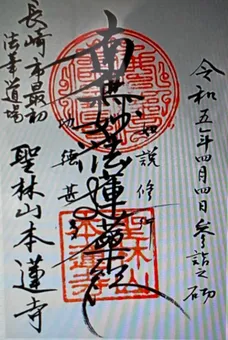 令和五年四月四日 参詣之砌
如説修行
南無妙法蓮華経
功徳甚多
長崎市最初
法華道場
聖林山本蓮寺
聖林山
本蓮寺